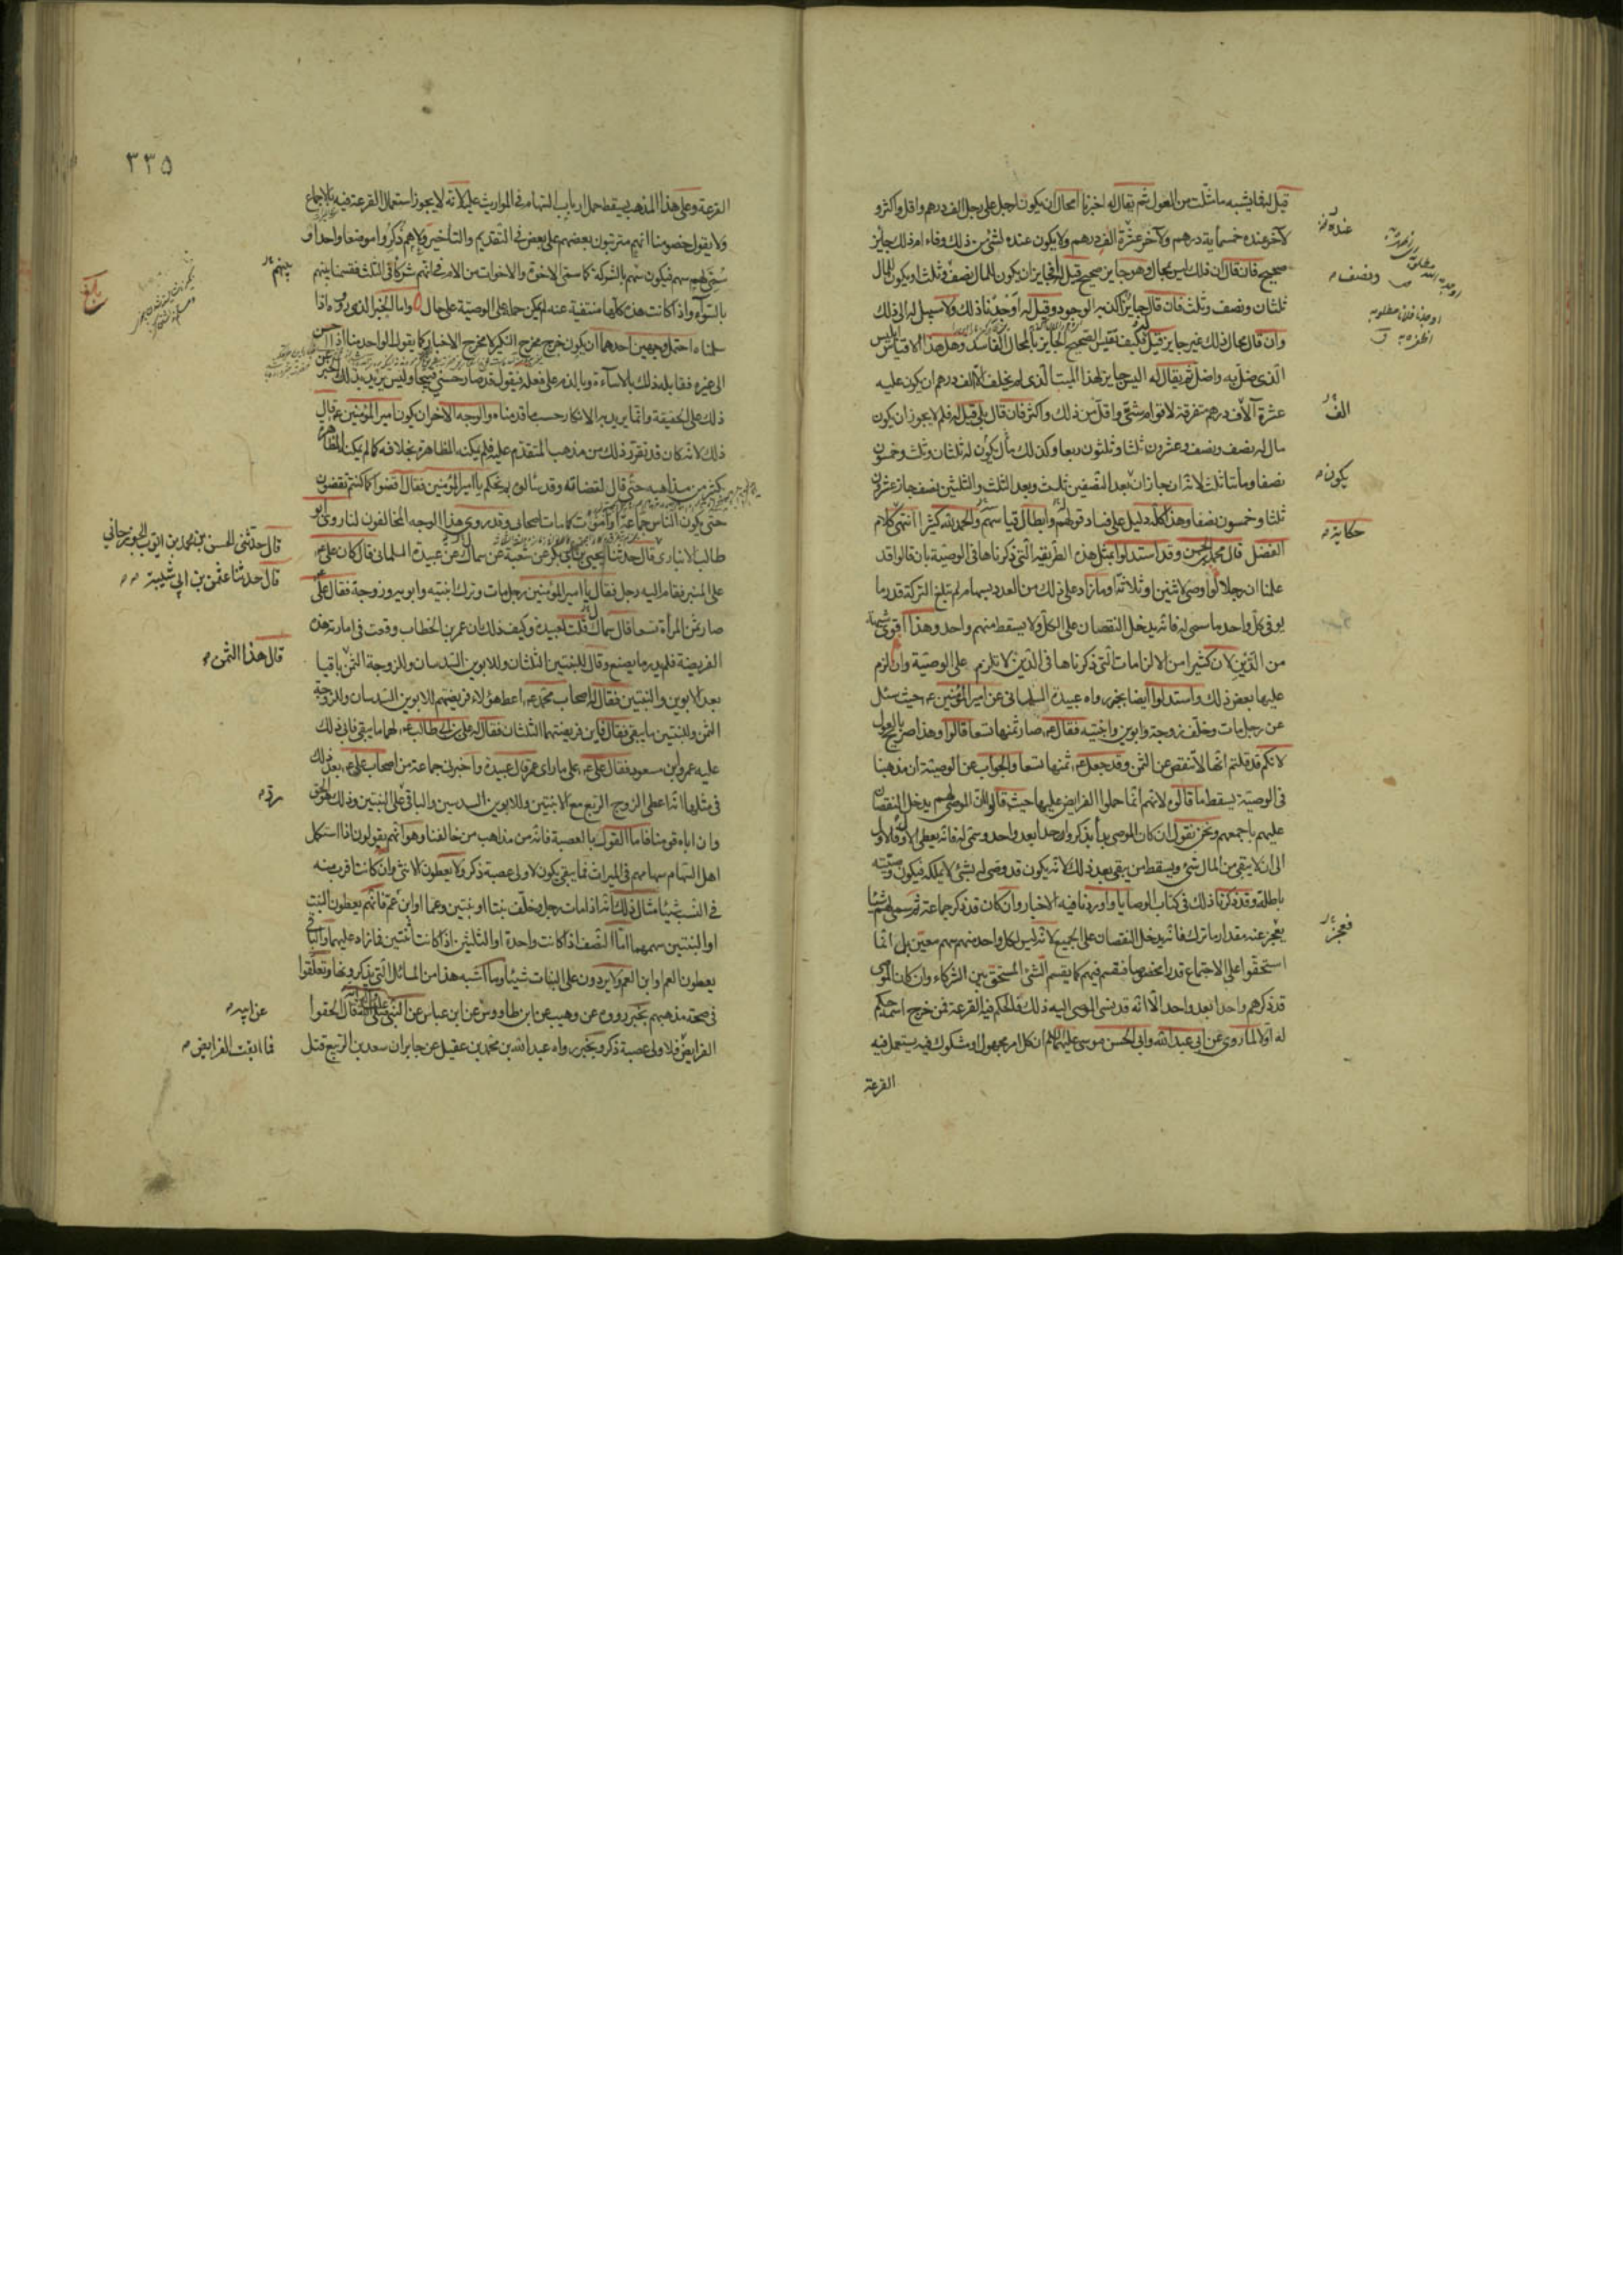 قيل له فما يشبه ما مثلت من العول ثم يقال له اخبرنا أمحال ان يكون لرجل على رجل الف درهم واقل واكثر و
لآخر عنده خمسمأية درهم ولآخر عشرة الف درهم ولا يكون عنده لشئ من ذلك وفاء ام ذلك جايز
صحيح فان قال ان ذلك ليس بمحال وهو جايز صحيح قيل له أفجايز ان يكون المال نصف وثلث او يكون المال
ثلثان ونصف وثلث فان قال جايز أكذبه الوجود وقيل له أوجدنا ذلك ولا سبيل له الى ذلك
وان قال محال ذلك غير جايز قيل له فكيف تقيس الصحيح الجايز بالمحال الفاسد وهل هذا الا قياس
الذى ضل به واضل ثم يقال له اليس جايز لهذا الميت الذى لم يخلف الا الف درهم ان يكون عليه
عشرة آلاف درهم متفرقة لاقوام شتى واقل من ذلك واكثر فان قال بلى قيل له فلم لا يجوز ان يكون
مال له نصف ونصف وعشرون ثلثا وثلثون ربعا وكذلك مال يكون له ثلثان وثلث وخمسون
نصفا ومأتا ثلث لانه ان جاز ان بعد النصفين ثلث وبعد الثلث والثلثين نصف جاز عشرون
ثلثا وخمسون نصفا وهذا كله دليل على فساد قولهم وابطال قياسهم والحمد لله كثيرا انتهى كلام
الفضل قال محمد بن الحسن وقد استدلوا بمثل هذه الطريقة التى ذكرناها فى الوصية بان قالوا قد
علمنا ان رجلا لو اوصى لاثنين او ثلاثة او ما زاد على ذلك من العدد بسهام ولم تبلغ التركة قدر ما
يوفى كل واحد ما سمى له فانه يدخل النقصان على الكل ولا يسقط منهم واحد وهذا اقوى شبهة
من الدين لان كثيرا من الالزامات التى ذكرناها فى الدين لا تلزم على الوصية وان الزم
عليها بعض ذلك واستدلوا ايضا بخبر رواه عبيدة السلمانى عن امير المؤمنين ع حيث سئل
عن رجل مات وخلف زوجة وابوين وابنتيه فقال ع صار ثمنها تسعا قالوا وهذا صريح بالعول
لانكم قد قلتم انها لا تنقص عن الثمن وقد جعل ع ثمنها تسعا والجواب عن الوصية ان مذهبنا
فى الوصية يسقط ما قالوه لانهم انما حملوا الفرايض عليها حيث قالوا ان الموصى لهم يدخل النقصان
عليهم باجمعهم ونحن نقول ان كان الموصى بدأ بذكر واحد بعد واحد وسمى له فانه يعطى الاول فالاول
الى ان لا يبقى من المال شئ ويسقط من يبقى بعد ذلك لانه يكون قد وصى له بشئ لا يملكه فيكون وصيته
باطلة وقد ذكرنا ذلك فى كتاب الوصايا واوردنا فيه الاخبار وان كان قد ذكر جماعة ثم سمى لهم شيئا
يعجز عنه مقدار ما ترك فانه يدخل النقصان على الجميع لانه ليس لكل واحد منهم سهم معين بل انما
استحقوا على الاجتماع قدرا مخصوصا فيقسم فيهم كما يقسم الشئ المستحق بين الشركاء وان كان الموصى
قد ذكرهم واحدا بعد واحد الا انه قد نسى الوصى اليه ذلك فالحكم فيه القرعة فمن خرج اسمه حكم
له اولا لما روى عن ابى عبد الله وابى الحسن موسى عليهما السلام ان كل امر مجهول او مشكوك فيه يستعمل فيه
القرعة
ونصف
الف
يكون
حكاية
فعجز
٣٣٥
القرعة وعلى هذا المذهب يسقط حمل ارباب السهام فى المواريث عليه لانه لا يجوز استعمال القرعة فيه بالاجماع
ولا يقول خصومنا انهم مترتبون بعضهم على بعض فى التقديم والتأخير ولا هم ذكروا موضعا واحدا و
سمى لهم سهم فيكون سهم بالشركة كما سمى الاخوة والاخوات من الام فى انهم شركاء فى الثلث فقسمنا بينهم
بالسواء واذا كانت هذه كلها منتفية عنه لم يمكن حمله على الوصية على حال واما الخبر الذى رووه اذا
سلمناه احتمل وجهين احدهما ان يكون خرج مخرج النكير لا مخرج الاخبار كما يقول الواحد منا اذا احسن
الى غيره فقابله ذلك بالاساءة وبالذم على فعله فيقول قد صار حسنى قبيحا وليس يريد بذلك الخبر عن
ذلك على الحقيقة وانما يريد به الانكار حسب ما قدمناه والوجه الاخر ان يكون امير المؤمنين ع قال
ذلك لانه كان قد تقرر ذلك من مذهب المتقدم عليه فلم يمكنه المظاهرة بخلافه كما لم يمكنه المظاهرة
بكثير من مذاهبه حتى قال لقضاته وقد سألوه بم نحكم يا امير المؤمنين فقال اقضوا كما كنتم تقضون
حتى يكون الناس جماعة او اموت كما مات اصحابى وقد روى هذا الوجه المخالفون لنا روى ابو
طالب الانبارى قال حدثنا يحيى بن ابى بكر عن شعبة عن سماك عن عبيدة السلمانى قال كان على ع
على المنبر فقام اليه رجل فقال يا امير المؤمنين رجل مات وترك ابنتيه وابويه وزوجة فقال على ع
صار ثمن المرأة تسعا قال سماك قلت لعبيدة وكيف ذلك قال ان عمر بن الخطاب وقعت فى امارته هذه
الفريضة فلم يدر ما يصنع وقال للبنتين الثلثان وللابوين السدسان وللزوجة الثمن باقيا
بعد الابوين والبنتين فقال له اصحاب محمد ص اعط هؤلاء فريضتهم للابوين السدسان وللزوجة
الثمن وللبنتين ما يبقى فقال فاين فريضتهما الثلثان فقال له على بن ابى طالب ع لهما ما يبقى فابى ذلك
عليه عمر وابن مسعود فقال على ع على ما راى عمر قال عبيدة واخبرنى جماعة من اصحاب على ع بعد ذلك
فى مثلها انه اعطى الزوج الربع مع الابنتين وللابوين السدسين والباقى على البنتين وذلك هو الحق
وان اباه قومنا فاما القول بالعصبة فانه من مذاهب من خالفنا وهو انهم يقولون اذا استكمل
اهل السهام سهامهم فى الميراث فما يبقى يكون لاولى عصبة ذكر ولا يعطون الانثى وان كانت اقرب منه
فى النسب شيئا مثال ذلك انه اذا مات رجل وخلف بنتا او بنتين وعما او ابن عم فانهم يعطون البنت
او البنتين سهمهما اما النصف اذا كانت واحدة او الثلثين اذا كانت اثنتين فما زاد عليهما والباقى
يعطون العم او ابن العم ولا يردون على البنات شيئا وما اشبه هذا من المسائل التى يذكرونها وتعلقوا
فى صحة مذهبهم بخبر رووه عن وهيب عن ابن طاووس عن ابن عباس عن النبى صلى الله عليه وآله انه قال الحقوا
الفرايض فلاولى عصبة ذكر وبخبر رواه عبد الله بن محمد بن عقيل عن جابر ان سعد بن الربيع قتل
بينهم
بلغ
قال حدثنى الحسن بن محمد بن ايوب الجوزجانى
قال حدثنا عثمن بن ابى شيبة
قال هذا الثمن
عن ابيه
فما ابقت الفرايض